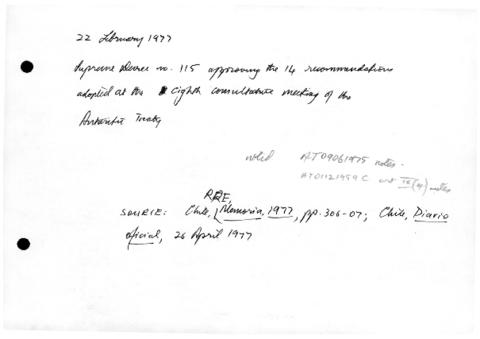 22 February 1977
Supreme Decree no. 115 approving the 14 recommendations
adopted at the eighth consultative meeting of the
Antarctic Treaty
noted AT09061975 notes.
AT01121959C art IX(4) notes
RRE,
SOURCE: Chile, Memoria, 1977, pp. 306-07; Chile, Diario
oficial, 26 April 1977